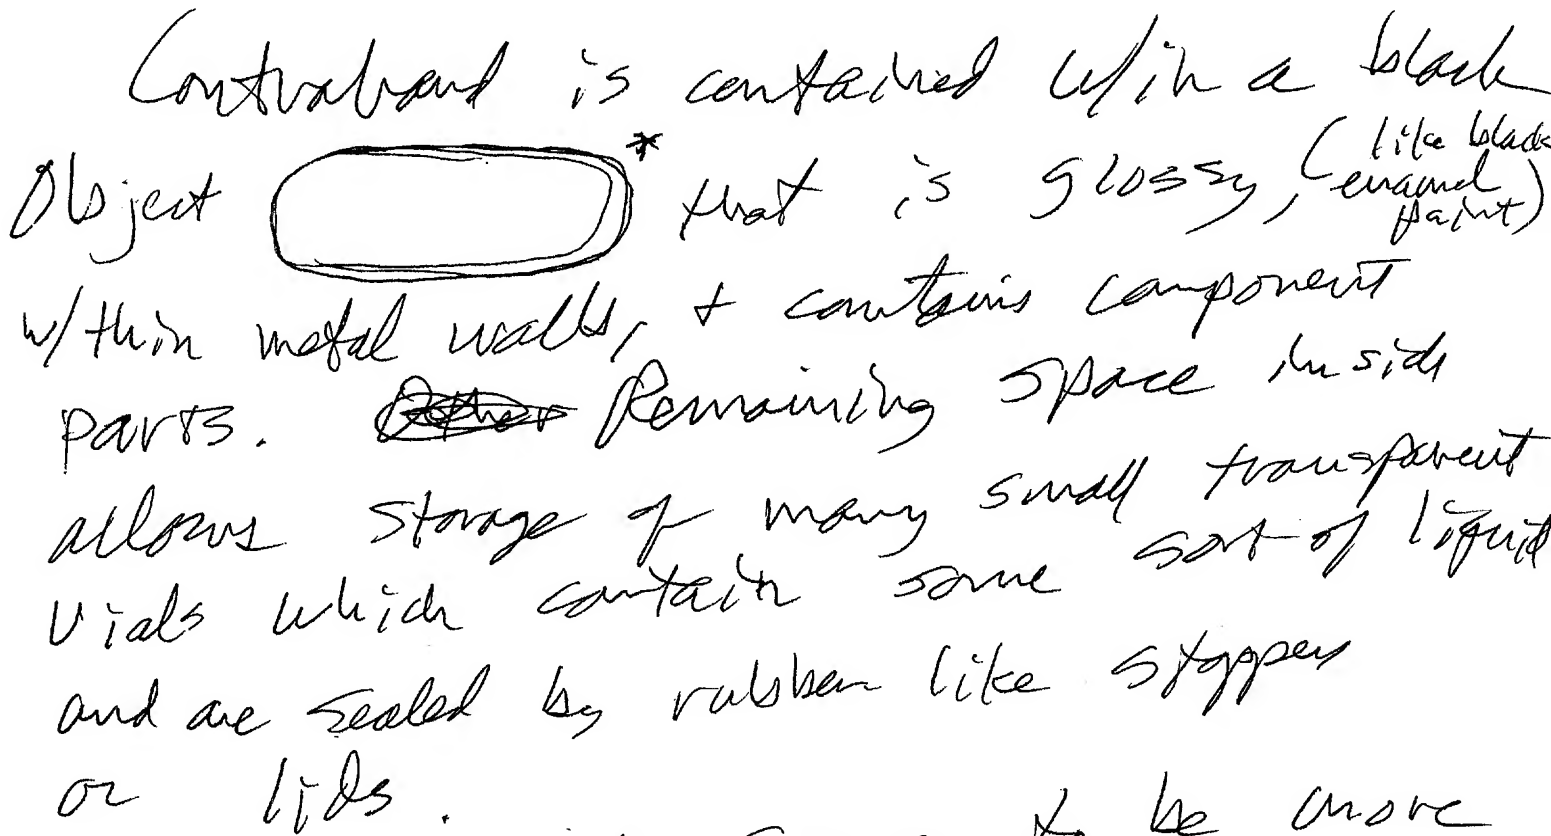 Contraband is contained w/in a black
Object * that is glossy, (like black
enamel
paint)
w/thin metal walls, + contains component
parts. Remaining space inside
allows storage of many small transparent
vials which contain some sort of liquid
and are sealed by rubber like stoppers
or lids.
to be more